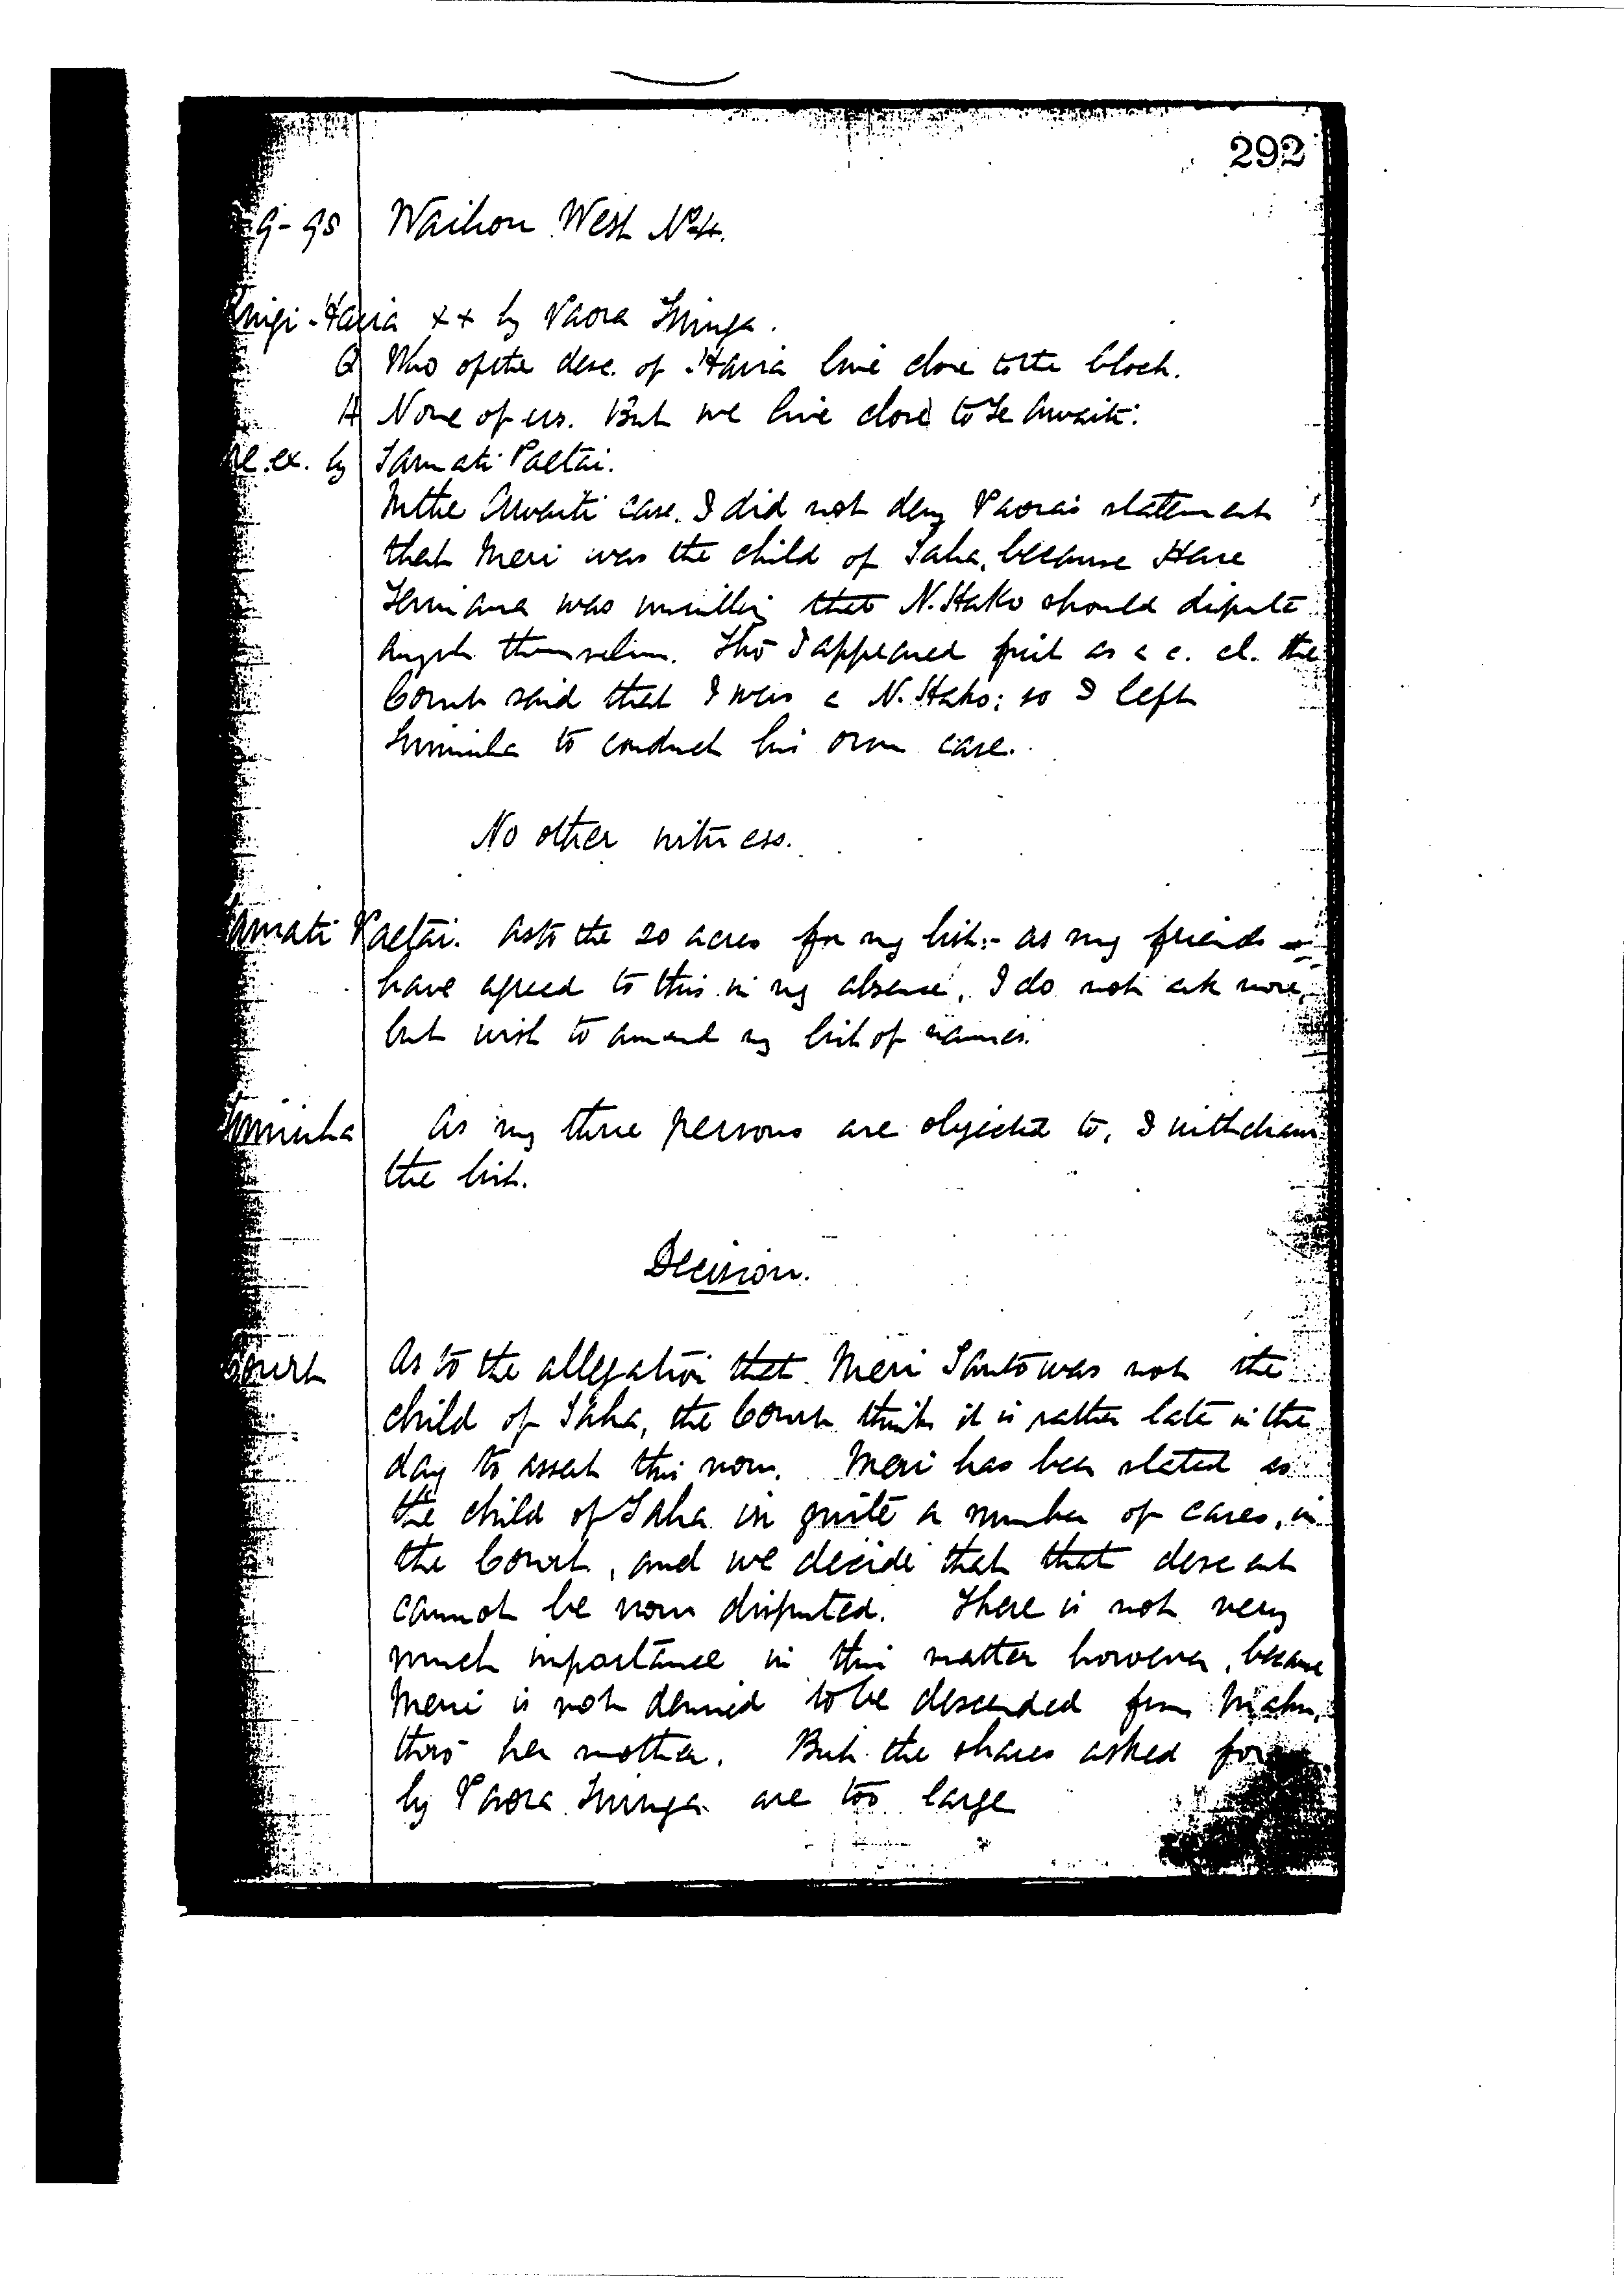 292
9-95 Waihou West No 4.
Haura ×+ by Paora Tininga.
Q Who of the desc. of Haura live close to the block.
A None of us. But we live close to Te Awaiti.
Re. ex. by Tamati Paetai.
In the Awaiti case. I did not deny Paora's statement
that Meri was the child of Taha, because Hare
was unwilling that N. Hako should dispute
amgst. themselves. Tho' I appeared first as a c. cl. the
Court said that I was a N. Hako; so I left
to conduct his own case.
No other witness.
Tamati Paetai. Asks the 20 acres for my list:- as my friends
have agreed to this in my absence, I do not ask more,
but wish to amend my list of names.
As my three persons are objected to, I withdraw
the list.
Decision.
Court As to the allegation that Meri was not the
child of Taha, the Court thinks it is rather late in the
day to assert this now. Meri has been stated as
the child of Taha in quite a number of cases, in
the Court, and we decide that that descent
cannot be now disputed. There is not very
much importance in this matter however, because
Meri is not denied to be descended from Mahu,
thro' her mother. But the shares asked for
by Paora Tininga are too large